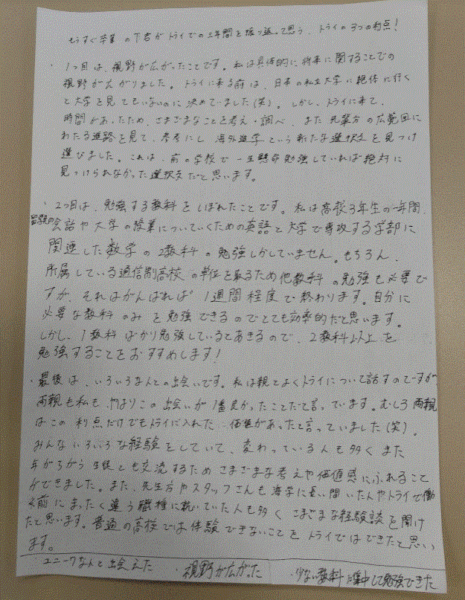 もうすぐ卒業の下名がトライでの1年間を振り返って思う、トライの3つの利点！
・1つ目は、視野が広がったことです。私は具体的に将来に関することでの
視野が広がりました。トライに来る前は、日本の私立大学に絶対に行く
と大学を見てもいないのに決めてました(笑)。しかし、トライに来て、
時間があったため、さまざまなことを考え・調べ、また先輩方の広範囲に
わたる進路を見て、参考にし、海外進学という新たな選択支を見つけ
選びました。これは、前の学校で一生懸命勉強していれば絶対に
見つけられなかった選択支だと思います。
・2つ目は、勉強する教科をしぼれたことです。私は高校3年生の一年間、
会話や大学の授業についていくための英語と大学で専攻する学部に
関連した数学の2教科の勉強しかしていません。もちろん、
所属している通信制高校の単位を取るため他教科の勉強も必要で
すが、それはがんばれば1週間程度で終わります。自分に
必要な教科のみを勉強できるのでとても効率的だと思います。
しかし、1教科ばかり勉強しているとあきるので、2教科以上を
勉強することをおすすめします！
・最後は、いろいろな人との出会いです。私は親とよくトライについて話すのですが
両親も私もやはりこの出会いが1番良かったことだと言っています。むしろ両親
はこの利点だけでもトライに入れた価値があったと言っていました(笑)。
みんないろいろな経験をしていて、変わっている人も多くまた
年がちがう生徒とも交流するためさまざまな考えや価値感にふれること
ができました。また、先生方やスタッフさんも海外に長い間いた人やトライで働
く前にまったく違う職種に就いていた人も多くさまざまな経験談を聞け
たと思います。普通の学校では体験できないことをトライではできたと思い
ます。
ユニークな人と出会えた ・視野が広がった ・少ない教科に集中して勉強できた